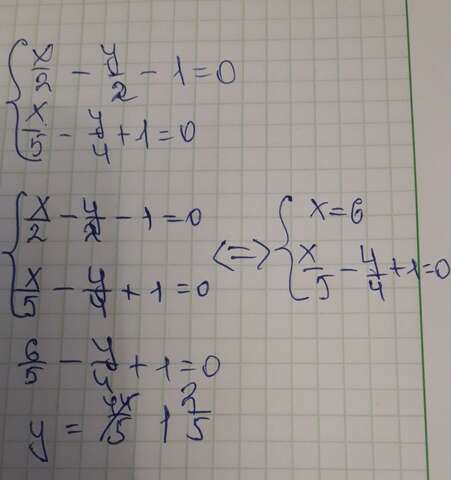 x/2 - y/2 - 1 = 0
x/5 - y/4 + 1 = 0
x/2 - y/2 - 1 = 0
x/5 - y/4 + 1 = 0
<=> x = 6
x/5 - y/4 + 1 = 0
6/5 - y/ + 1 = 0
y = 2/5